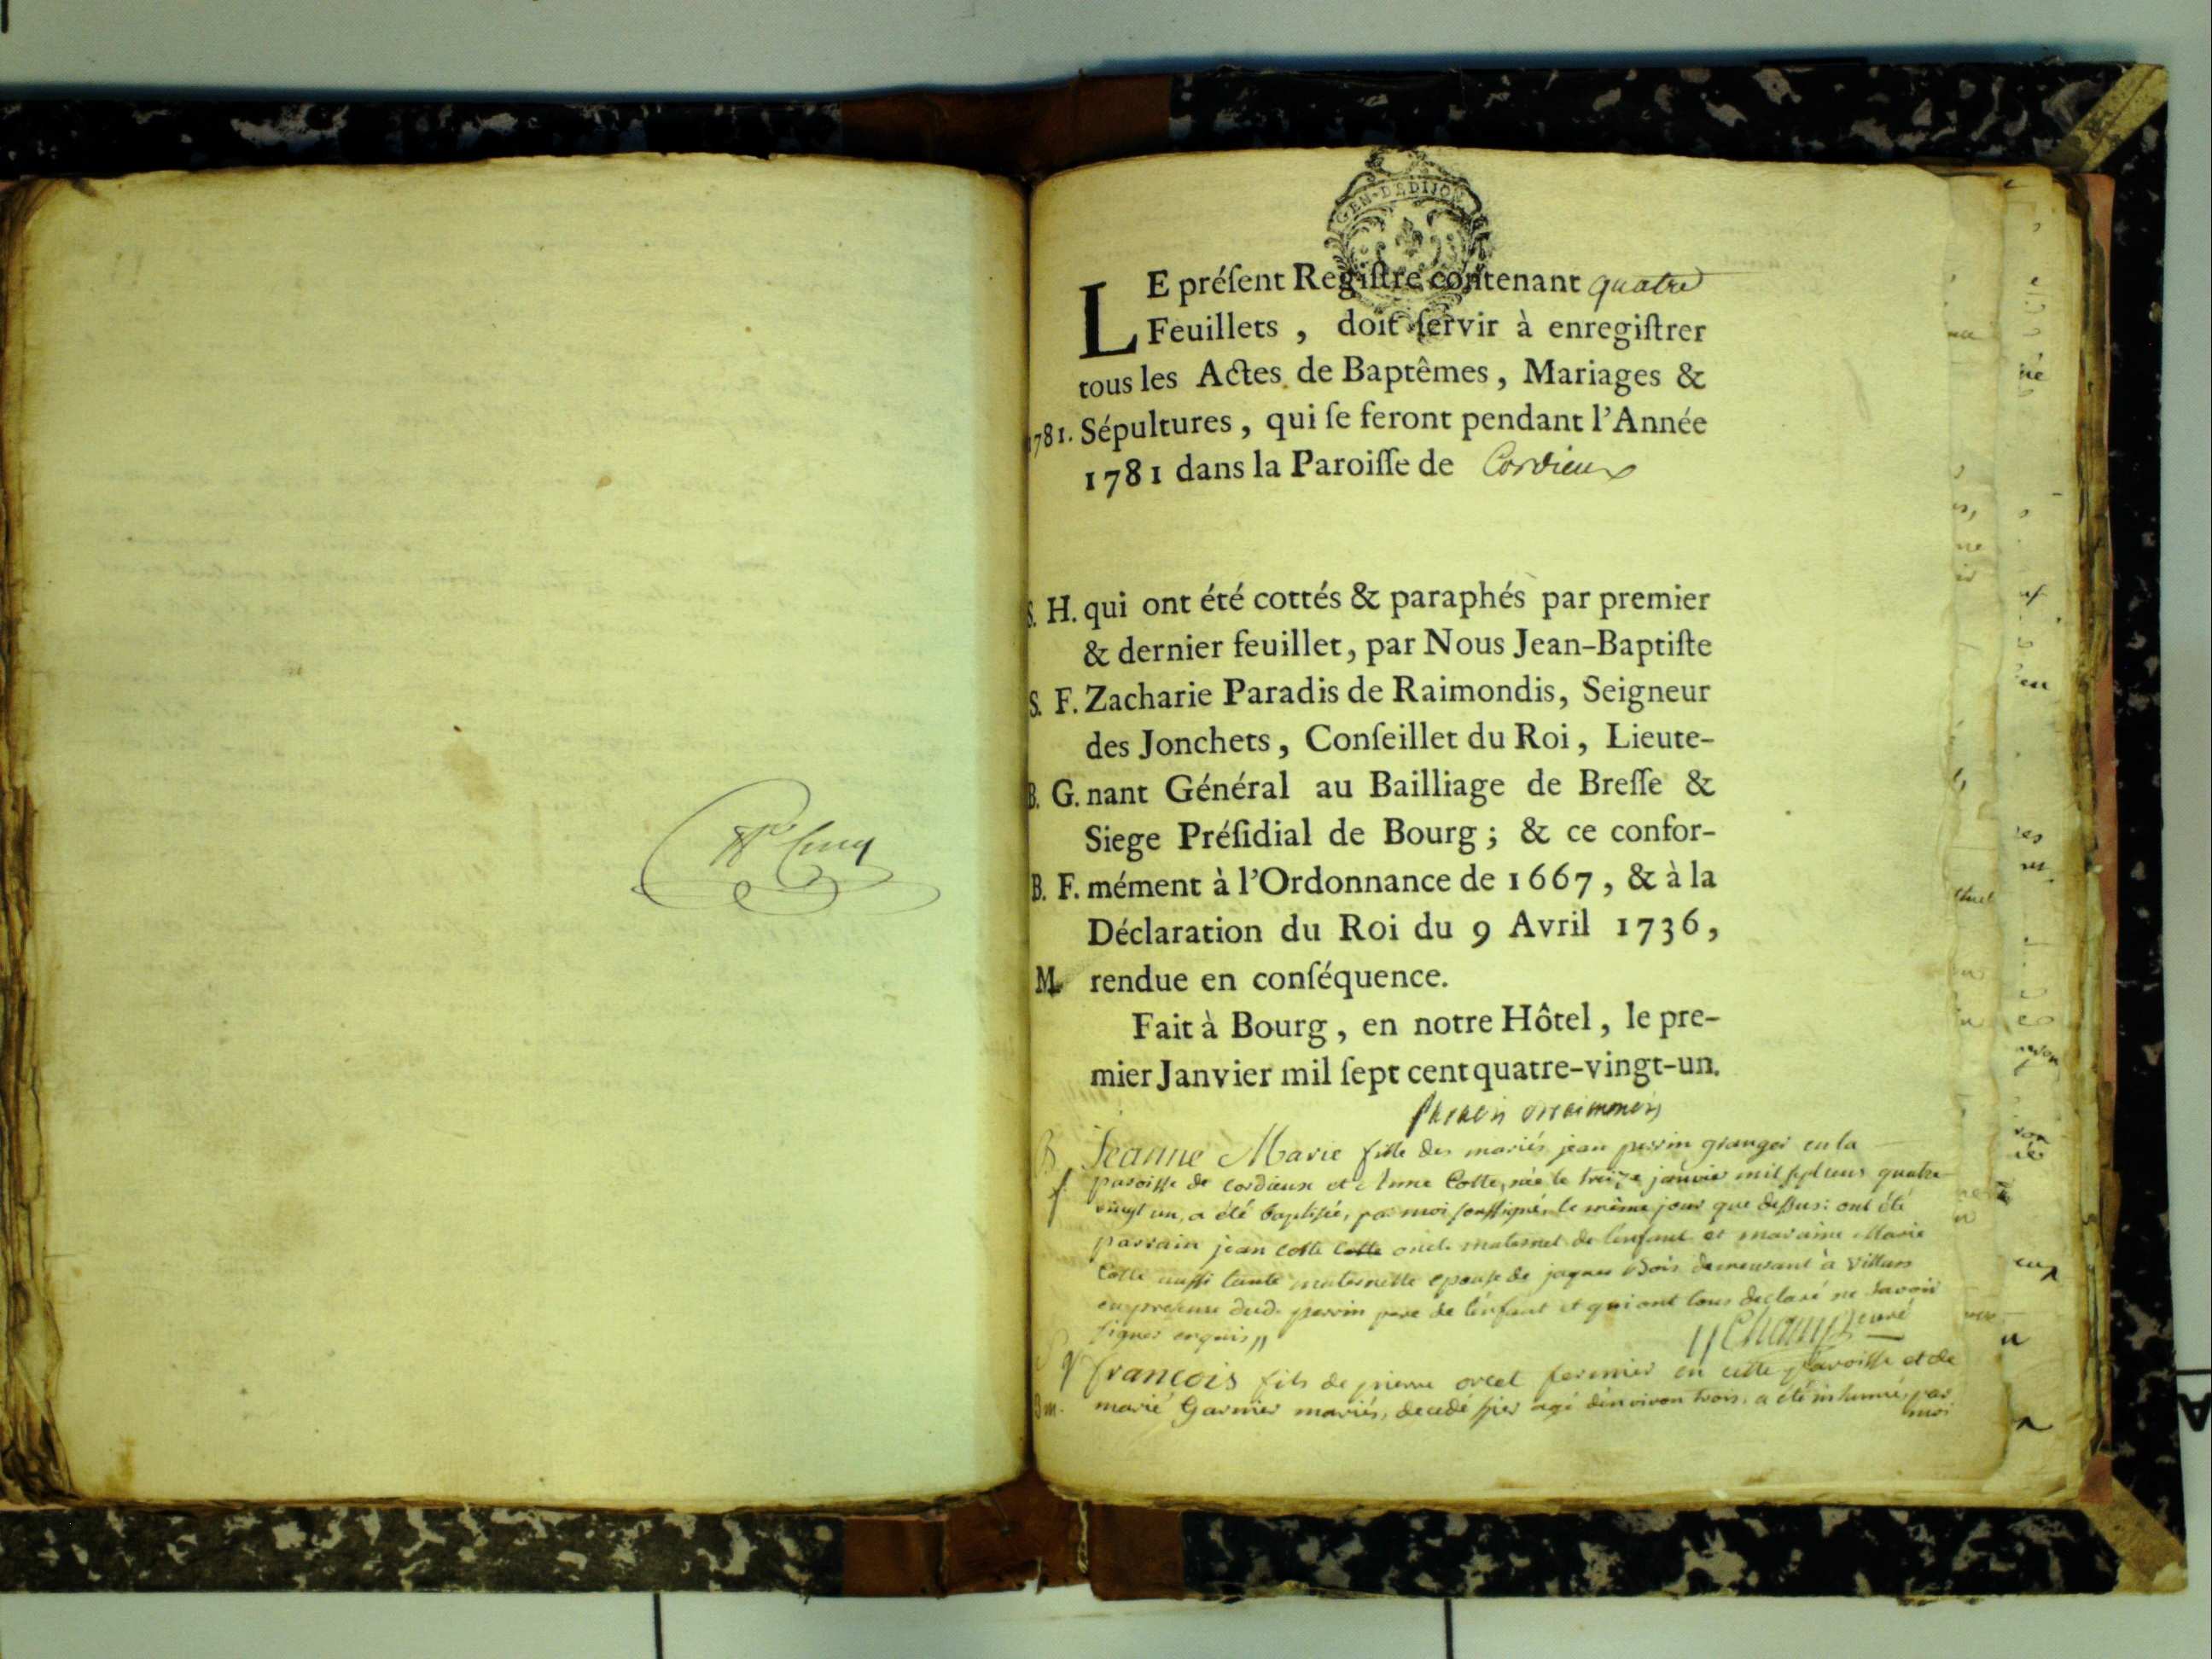 GEN. DE DIJON
LE préſent Regiſtre contenant quatre
Feuillets, doit ſervir à enregiſtrer
tous les Actes de Baptêmes, Mariages &
1781. Sépultures, qui ſe feront pendant l'Année
1781 dans la Paroiſſe de Cordieux
S. H. qui ont été cottés & paraphés par premier
& dernier feuillet, par Nous Jean-Baptiſte
S. F. Zacharie Paradis de Raimondis, Seigneur
des Jonchets, Conſeillet du Roi, Lieute-
B. G. nant Général au Bailliage de Breſſe &
Siege Préſidial de Bourg; & ce confor-
B. F. mément à l'Ordonnance de 1667, & à la
Déclaration du Roi du 9 Avril 1736,
M. rendue en conſéquence.
Fait à Bourg, en notre Hôtel, le pre-
mier Janvier mil ſept cent quatre-vingt-un.
B. Jeanne Marie fille des mariés jean perrin granger en la
f. paroisse de cordieux et Anne Colle, née le treize janvier mil sept cens quatre
vingt un, a été baptisée, par moi soussigné, le même jour que dessus: ont été
parrain jean colle oncle maternel de l'enfant et maraine Marie
Colle aussi tante maternelle epouse de jaques Bois demeurant à Villars
en presence dud. perrin pere de l'enfant et qui ont tous declaré ne savoir
signer enquis // Champ curé
S. françois fils de pierre orcel fermier en cette paroisse et de
marie Garnier mariés, decedé hier agé d'environ trois, a été inhumé, par
moi